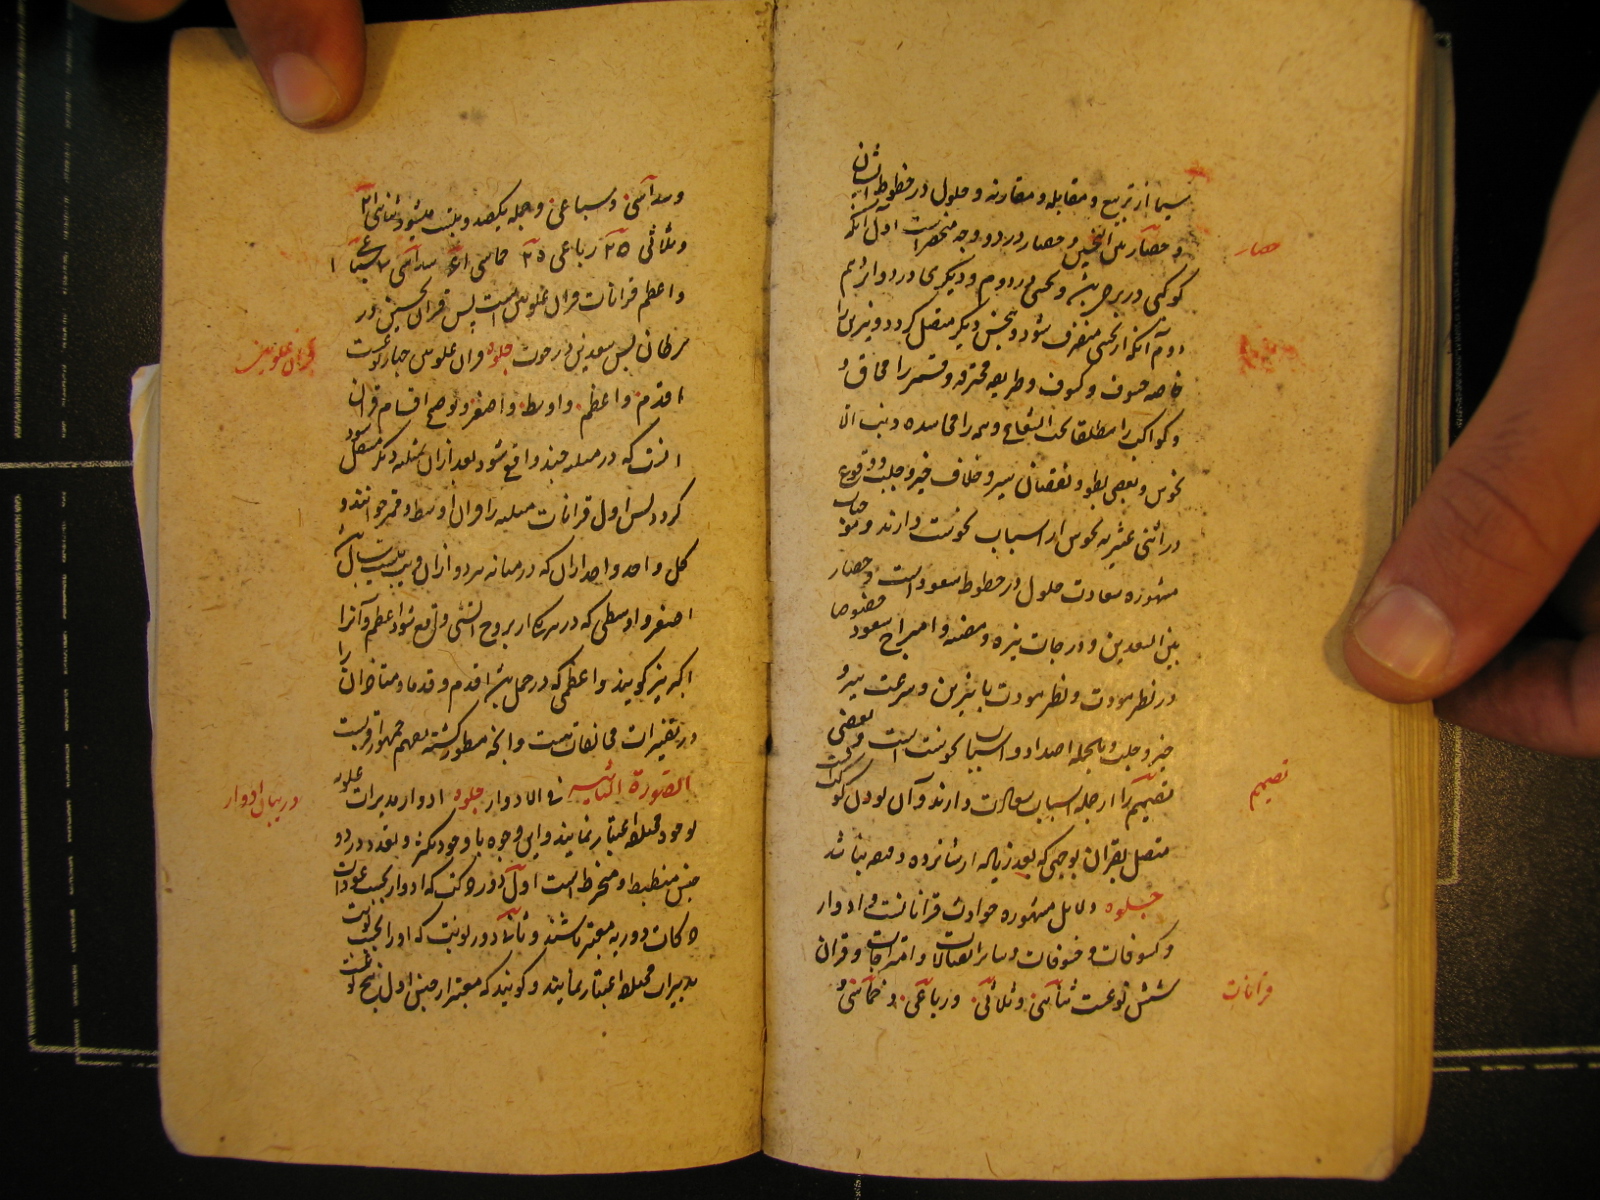 سیما از تربیع و مقابله و مقارنه و حلول در خطوط ایشان
و حصار بین النحسین و حصار در دو وجه منحصر است اول آنکه
حصار
کوکبی در برجی بین و نحسی در دوم و دیگری در دوازدهم
دوم آنکه از نحسی منصرف شود و بنحس دیگر متصل کردد و نیرین را
خاصه خسوف و کسوف و طریقه محترقه و قمر را محاق و
و کواکب را مطلقا تحت الشعاع و همه را
نحوس و بعضی بطو و نقصان سیر و خلاف خیر و جلب و وقوع
در اثنی عشریه نحوس از اسباب نحوست دارند و
مشهوره سعادت حلول در خطوط سعود است و حصار
بین السعدین و درجات نیره و مضیه و امتزاج سعود خصوصا
در نظر مودت و نظر مودت با نیرین و سرعت سیر و
خیر و جلب و بالجمله اضداد و اسباب نحوست است و بعضی
تصمیم را از جمله اسباب سعادت دارند و آن بودن کوکب
تصمیم
متصل بقران بوجهی که بعد زیاده از شانزده دقیقه نباشد
جلوه دلایل مشهوره حوادث قراناتست و ادوار
و کسوفات و خسوفات و سایر اتصالات و امتزاجات و قران
شش نوعست ثنائی و ثلاثی و رباعی و خماسی و
قرانات
و سداسی و سباعی و جمله یکصد و بیست میشود ثنائی ۲۱
و ثلاثی ۳۵ رباعی ۳۵ خماسی ۲۱ سداسی ۷ سباعی ۱
و اعظم قرانات قران علویین است پس قران نحسین در
سرطان پس سعدین در حوت جلوه قران علویین چهار نوعست
قران علویین
اقدم و اعظم و اوسط و اصغر و توضیح اقسام قران
آنست که در مثلثه چند واقع شود بعد از آن بمثلثه دیگر منتقل شود
کردد پس اول قرانات مثلثه را قران اوسط و قمر خوانند و
کل واحد واحد از آن که در میانه هر دو از آن قریب بیست سال
اصغر و اوسطی که در سرکار بروج آتشی واقع شود اعظم و آنرا
اکبر نیز کویند و اعظمی که در حمل بین اقدم و قدما و متاخران را
در تفسیرات مخالفات هست و آنچه مسطور کشته بفهم جمهور اقربست
الصورة الثانیه فی الادوار جلوه ادوار مدبرات علویه
در بیان ادوار
بوجوه مختلفه اعتبار نمایند و این وجوه با وجود تکثر و تعدد در دو
جنس منضبط و منخرط است اول دور حرکت که ادوار بحسب عودات
حرکات دوریه معتبر باشند و ثانی دور نوبت که او را بحسب نوبت
مدبرات مختلفه اعتبار نمایند و کویند که معتبر از جنس اول پنج نوعست